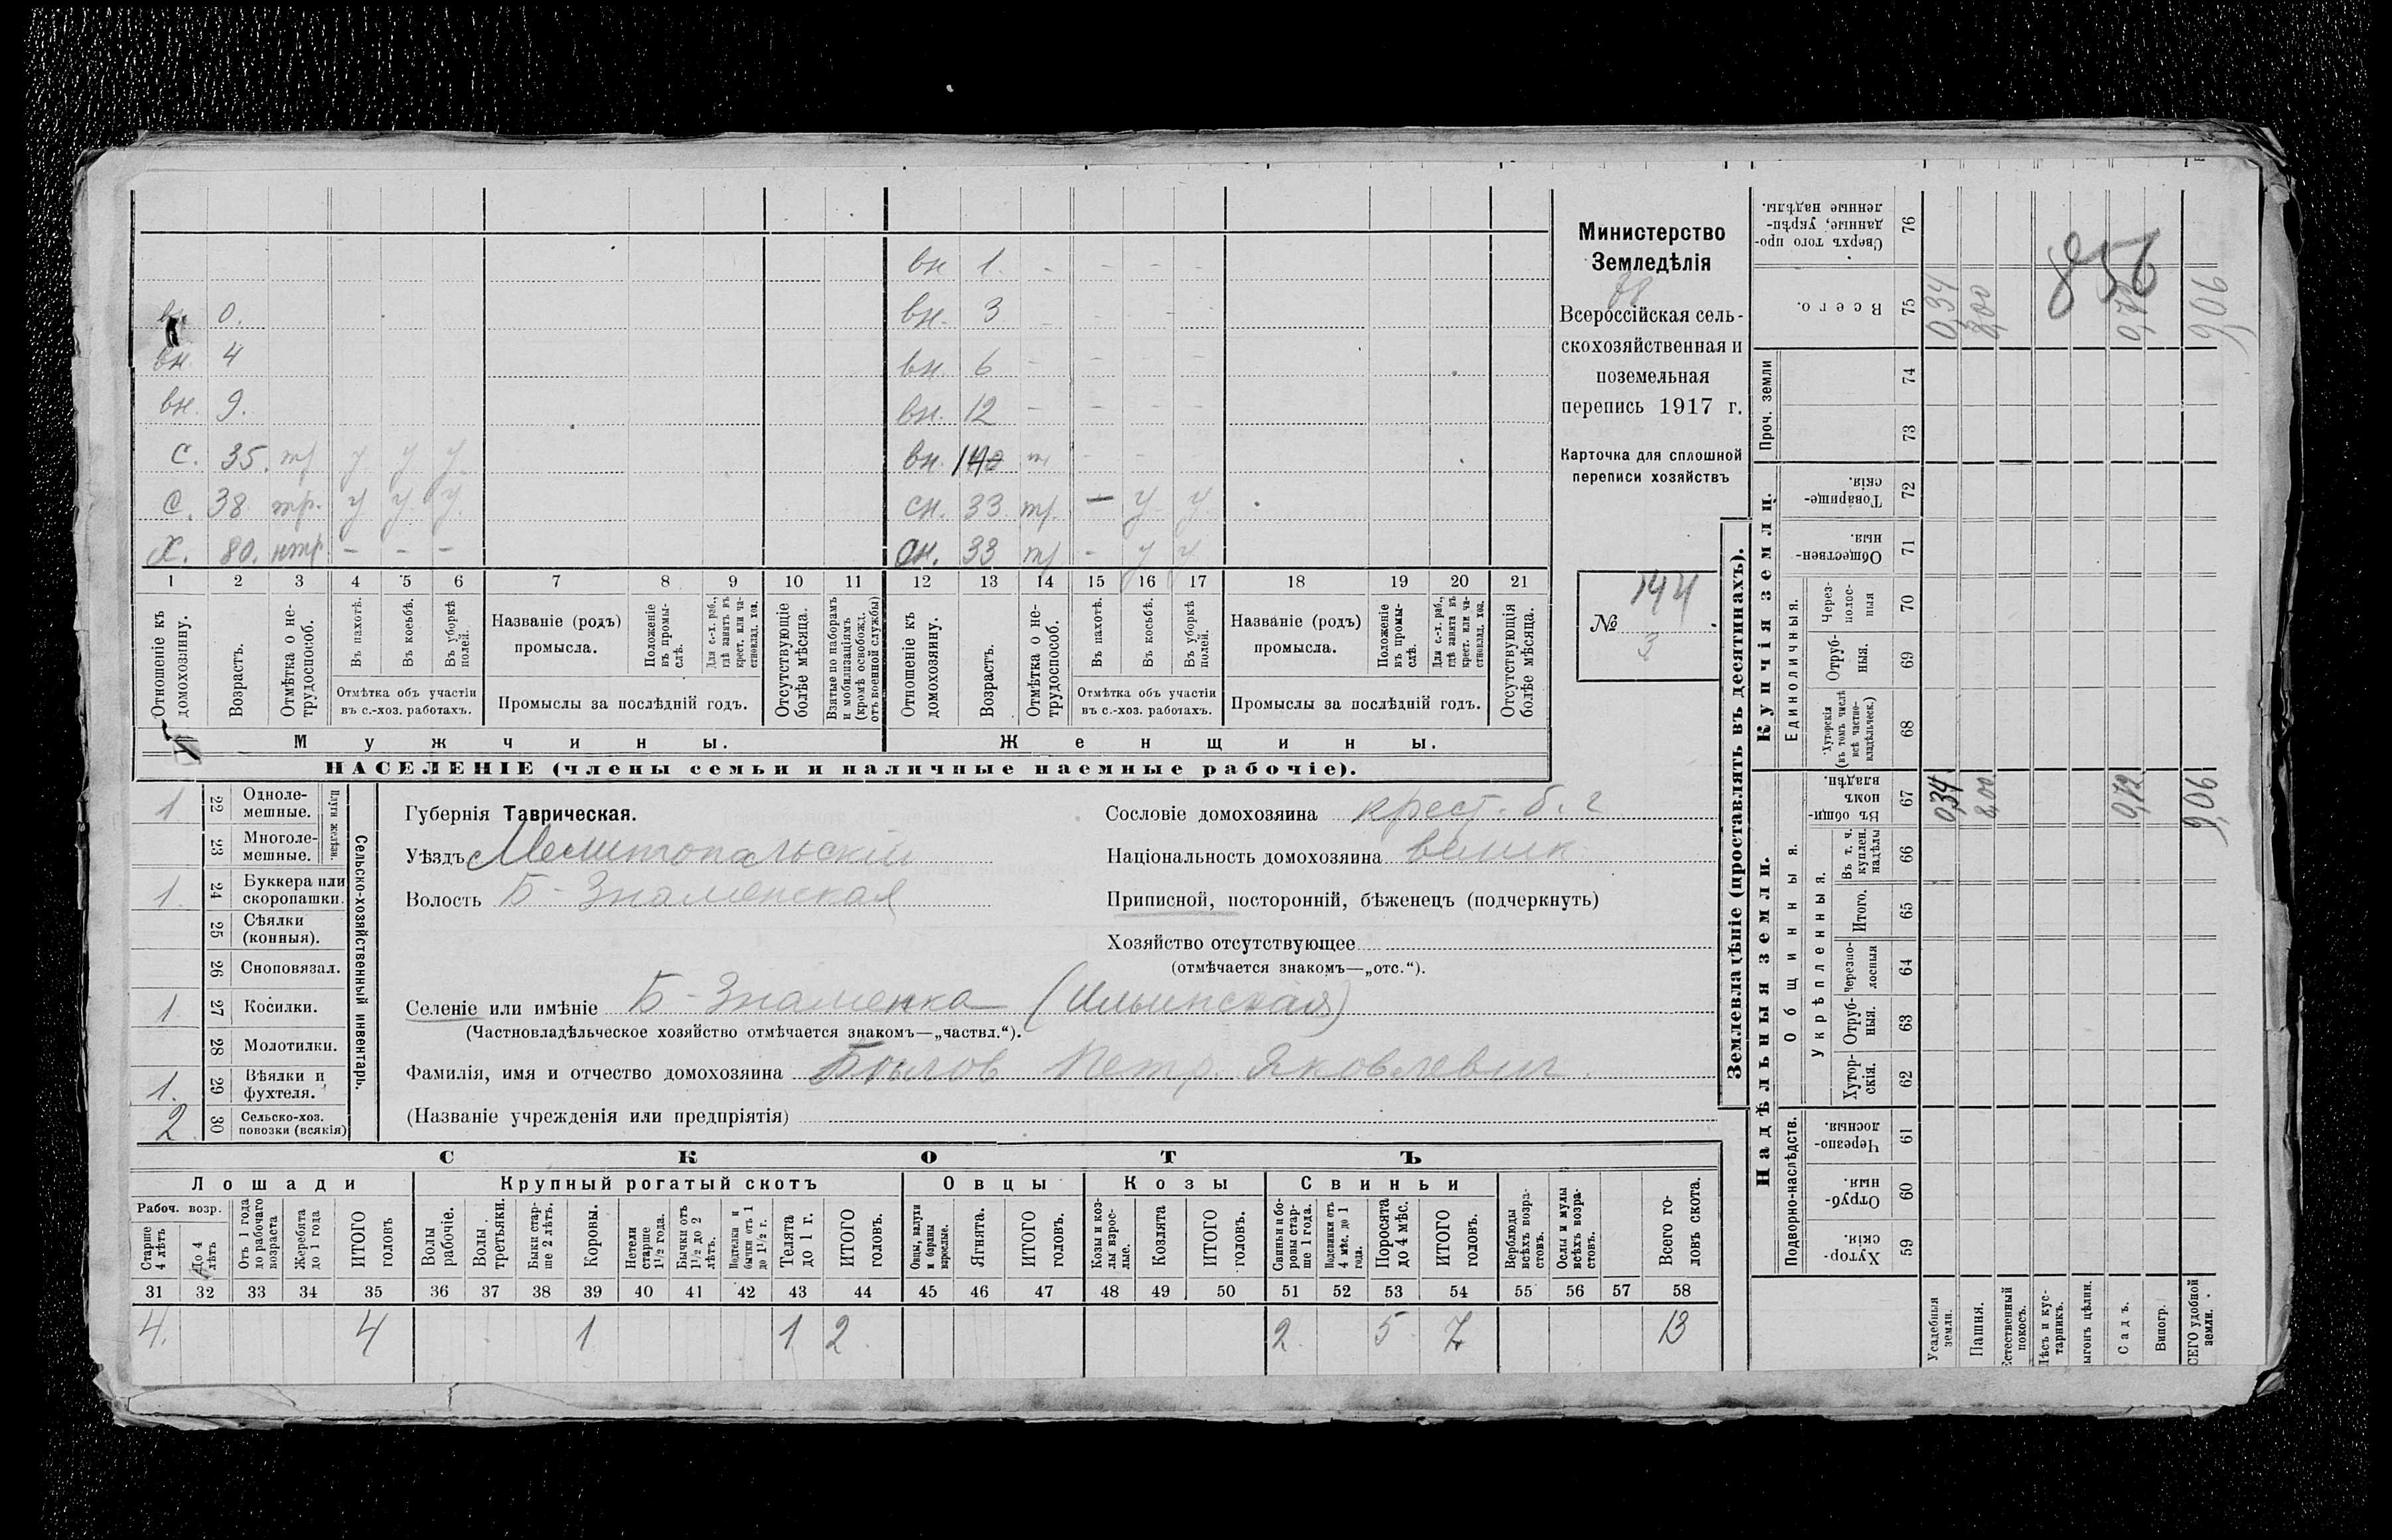 вн. 1. - - - -
вн. 0. вн. 3 - - - -
вн. 4 вн. 6 - - - -
вн. 9. вн. 12 - - - -
С. 35. тр у у у вн. 14 т - -
С. 38 тр. у у у. сн. 33 тр. — у у
Х. 80. нтр - - - сн. 33 тр - у у
1 2 3 4 5 6 7 8 9 10 11 12 13 14 15 16 17 18 19 20 21
Отношеніе къ домохозяину.
Возрастъ.
Отмѣтка о не-
трудоспособ.
Въ пахотѣ.
Въ косьбѣ.
Въ уборкѣ
полей.
Отмѣтка объ участіи
въ с.-хоз. работахъ.
Названіе (родъ)
промысла.
Положеніе
въ промы-
слѣ.
Для с.-х. раб.,
гдѣ занятъ въ
крест. или ча-
стновлад. хоз.
Промыслы за послѣдній годъ.
Отсутствующіе
болѣе мѣсяца.
Взятые по наборамъ
и мобилизаціямъ
(кромѣ освобожд.
отъ военной службы)
Отношеніе къ
домохозяину.
Возрастъ.
Отмѣтка о не-
трудоспособ.
Въ пахотѣ.
Въ косьбѣ.
Въ уборкѣ
полей.
Отмѣтка объ участіи
въ с.-хоз. работахъ.
Названіе (родъ)
промысла.
Положеніе
въ промы-
слѣ.
Для с.-х. раб.,
гдѣ занята въ
крест. или ча-
стновлад. хоз.
Промыслы за послѣдній годъ.
Отсутствующія
болѣе мѣсяца.
Мужчины. Женщины.
НАСЕЛЕНІЕ (члены семьи и наличные наемные рабочіе).
Министерство
Земледѣлія
Всероссійская сель-
скохозяйственная и
поземельная
перепись 1917 г.
Карточка для сплошной
переписи хозяйствъ
№ 144
3
1 22 Одноле-
мешные.
23 Многоле-
мешные.
Плуги желѣзн.
1. 24 Буккера или
скоропашки.
25 Сѣялки
(конныя).
26 Сноповязал.
1. 27 Косилки.
28 Молотилки.
1. 29 Вѣялки и
фухтеля.
2 30 Сельско-хоз.
повозки (всякія)
Сельско-хозяйственный инвентарь.
Губернія Таврическая.
Уѣздъ Мелитопальскій
Волость Б-Знаменская
Сословіе домохозяина крест. б. г
Національность домохозяина велик
Приписной, посторонній, бѣженецъ (подчеркнуть)
Хозяйство отсутствующее
(отмѣчается знакомъ—„отс.“).
Селеніе или имѣніе Б-Знаменка (Ильинская)
(Частновладѣльческое хозяйство отмѣчается знакомъ—„частвл.“).
Фамилія, имя и отчество домохозяина Былов Петр. Яковлевич.
(Названіе учрежденія или предпріятія)
СКОТЪ
Лошади Крупный рогатый скотъ Овцы Козы Свиньи
Рабоч. возр.
Старше
4 лѣтъ
До 4
лѣтъ
Отъ 1 года
до рабочаго
возраста
Жеребята
до 1 года
ИТОГО
головъ
Волы
рабочіе.
Волы
третьяки.
Быки стар-
ше 2 лѣтъ.
Коровы.
Нетели
старше
1½ года.
Бычки отъ
1½ до 2
лѣтъ.
Подтелки и
бычки отъ 1
до 1½ г.
Телята
до 1 г.
ИТОГО
головъ.
Овцы, валухи
и бараны
взрослые.
Ягнята.
ИТОГО
головъ.
Козы и коз-
лы взрос-
лые.
Козлята
ИТОГО
головъ.
Свиньи и бо-
ровы стар-
ше 1 года.
Подсвинки отъ
4 мѣс. до 1
года.
Поросята
до 4 мѣс.
ИТОГО
головъ.
Верблюды
всѣхъ возра-
стовъ.
Ослы и мулы
всѣхъ возра-
стовъ.
Всего го-
ловъ скота.
31 32 33 34 35 36 37 38 39 40 41 42 43 44 45 46 47 48 49 50 51 52 53 54 55 56 57 58
4. 4 1 1 2 2 5 7 13
Землевладѣніе (проставлять въ десятинахъ).
Купчія земли.
Надѣльныя земли.
Сверхъ того про-
данные, укрѣп-
ленные надѣлы.
76
Всего.
75 0,34 8,00 0,72 9,06
856
Проч. земли
74
73
Товарище-
скія.
72
Обществен-
ныя.
71
Единоличныя.
Через-
полос-
ныя
70
Отруб-
ныя.
69
Хуторскія
(въ томъ числѣ
всѣ частно-
владѣльческ.)
68
Общинныя.
Въ общин-
номъ
владѣн.
67 0,34 8,00 0,72 9,06
Укрѣпленныя.
Въ т. ч.
куплен.
надѣлы
66
Итого.
65
Черезпо-
лосныя
64
Отруб-
ныя.
63
Хутор-
скія.
62
Подворно-наслѣдств.
Черезпо-
лосныя.
61
Отруб-
ныя.
60
Хутор-
скія.
59
Усадебныя
земли.
Пашня.
Естественный
покосъ.
Лѣсъ и кус-
тарникъ.
ыгонъ цѣлин.
Садъ.
Виногр.
СЕГО удобной
земли.